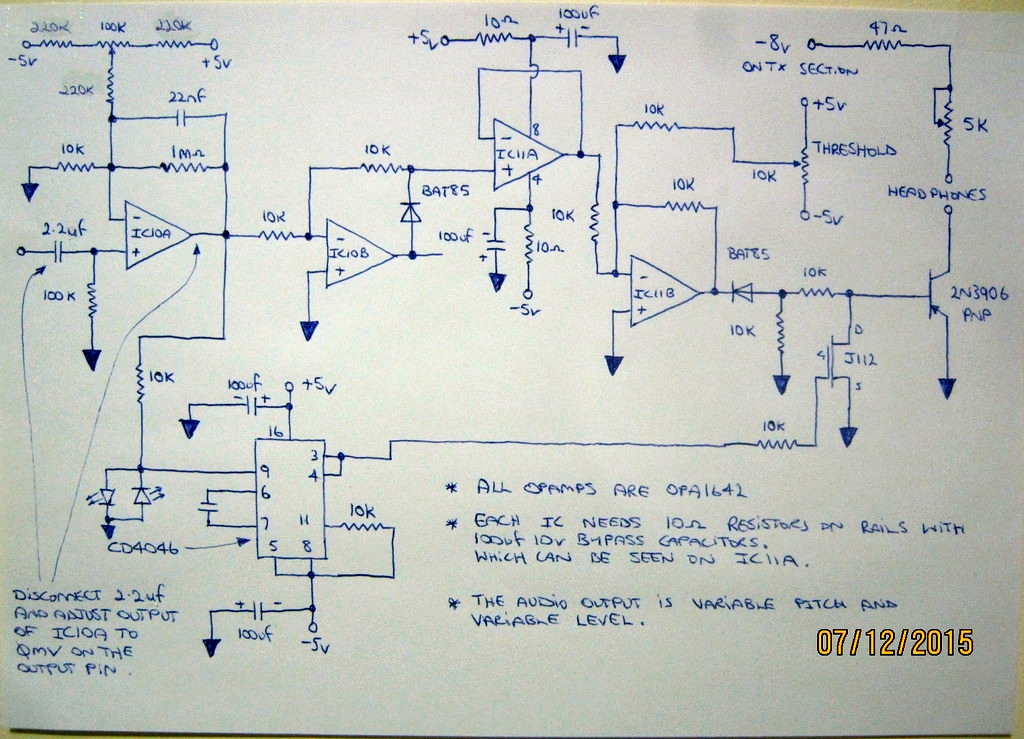 220K 100K 220K
-5V +5V
220K
22nF
10K 1MΩ
2.2uF
-
IC10A
+
100K
10K
10K
-
IC10B
+
BAT85
+5V 10Ω 100UF
+ -
8
-
IC11A
+
4
100UF
-
+
10Ω
-5V
10K
10K
10K
-
IC11B
+
+5V
THRESHOLD
10K
-5V
BAT85
10K
10K
-8V 47Ω
ON TX SECTION
5K
HEADPHONES
2N3906
PNP
D
G J112
S
10K
10K
100UF +5V
- +
16
9 3
4
6
7 11 10K
5 8
CD4046
+ -
100UF
-5V
DISCONNECT 2.2uF
AND ADJUST OUTPUT
OF IC10A TO
0MV ON THE
OUTPUT PIN.
* ALL OPAMPS ARE OPA1642
* EACH IC NEEDS 10Ω RESISTORS ON RAILS WITH
100UF 10V BYPASS CAPACITORS.
WHICH CAN BE SEEN ON IC11A.
* THE AUDIO OUTPUT IS VARIABLE PITCH AND
VARIABLE LEVEL.
07/12/2015